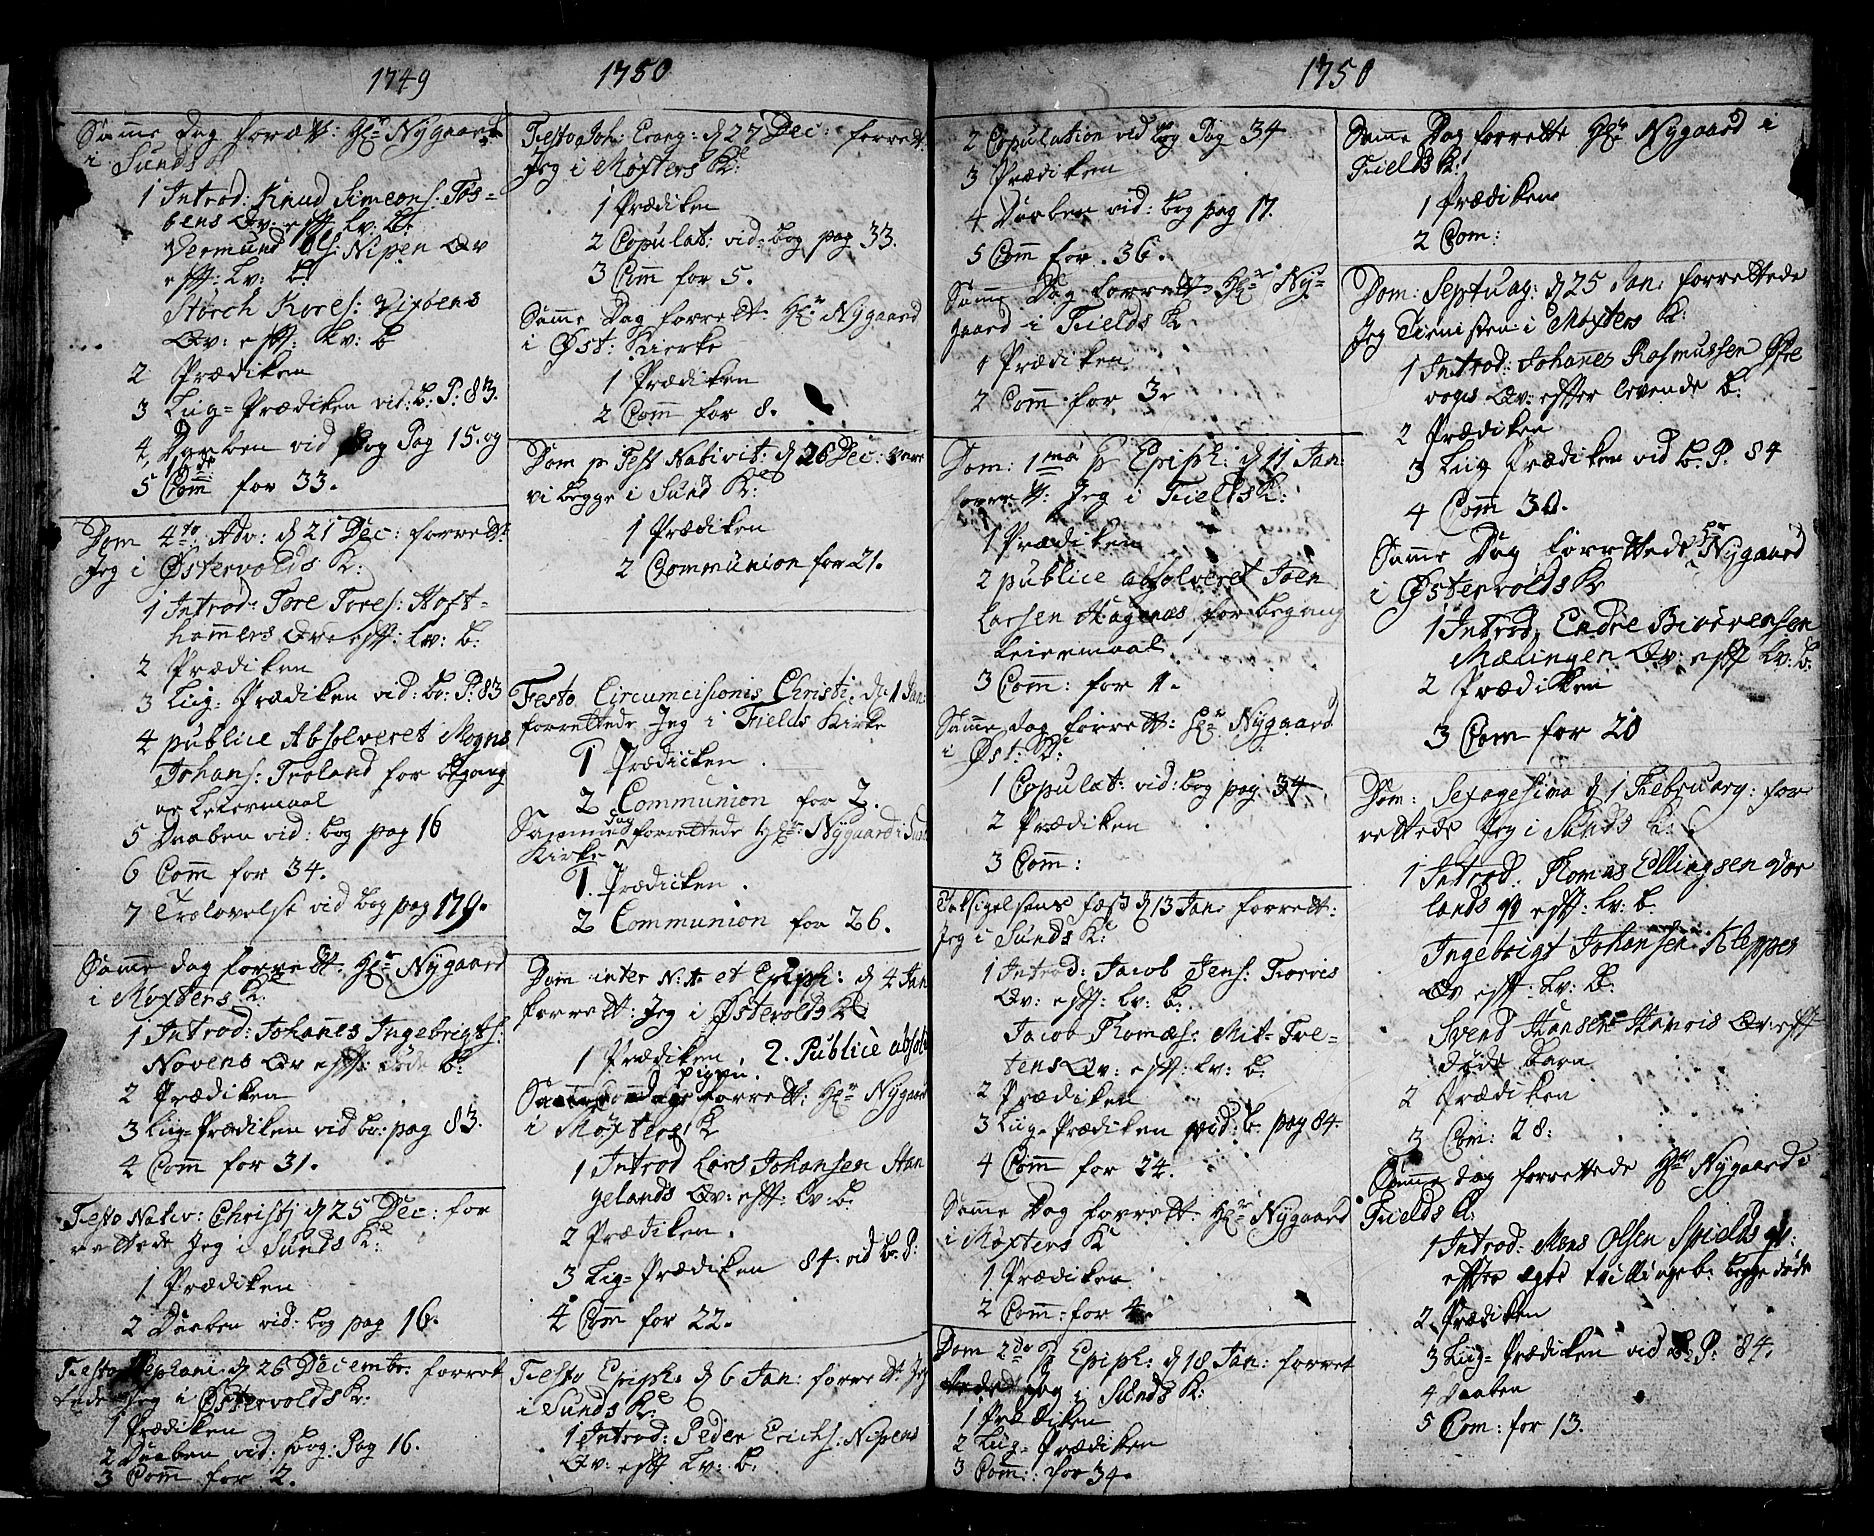 1749
Samme Dag forrett: Hr Nygaard
i Sunds
1 Introd: Knud Simeons: Tøs-
bens Qv: eft lv: B:
Vermund Ols: Nipen Qv
eft: lv: B:
Storch Kores: Vixøens
Qv: eft: lv: B
2 Prædiken
3 Liig-Prædiken vid: B: P: 83.
4 Daaben vid Bog Pag 15. og
5 Com̄ for 33.
Dom 4to Adv: d 21 Dec: forrett:
Jeg i Østervolds K:
1 Introd: Tore Tores: Hoft-
hammers Qv: eft: lv: B:
2 Prædiken
3 Liig-Prædiken vid: bo: P: 83
4 publice Absolveret Mogns
Johans: Troland for begang
ne Leiermaal
5 Daaben vid: bog pag 16
6 Com̄ for 34.
7 Trolovelse vid bog pag 179.
Samme dag forrett: Hr Nygaard
i Møxters K:
1 Introd: Johanes Ingebrigts:
Novens Qv eft: døde B:
2 Prædiken
3 Liig-Prædiken vid bo: pag 83.
4 Com̄ for 31.
Festo Nativ: Christi d 25 Dec: for
rettede Jeg i Sunds K:
1 Prædiken
2 Daaben vid: bog pag 16.
Festo Stephani d 26 Decembr. forret
tede Jeg i Østervolds K:
1 Prædiken
2 Daaben vid: bog: Pag 16.
3 Com̄ for 2.
1750
Festo Joh: Evang: d 27 Dec: forrett
Jeg i Møxters K:
1 Prædiken
2 Copulat: vid: bog pag 33.
3 Com̄ for 5.
Samme Dag forrett: Hr Nygaard
i Øst: Kierke
1 Prædiken
2 Com̄ for 8.
Dom p Fest Nativit: d 28 Dec: vare
vi begge i Sund K:
1 Prædiken
2 Communion for 21.
Festo Circumcisionis Christi, d 1 Jan:
forrettede Jeg i Fields Kirke
1 Prædicken.
2 Communion for 2.
Samme dag forrettede Hr Nygaard i Sund
Kirke
1. Prædicken.
2 Communion for 26.
Dom inter N: A: et Epiph: d 4 Jan
forrett: Jeg i Østervolds K:
1 Prædiken. 2. Publice absol
pigen.
Samme dag forrett: Hr Nygaard
i Møxters K
1 Introd Lars Johansen Hau
gelands Qv: eft: lv: B:
2 Prædiken.
3 Liig-Prædiken 84. vid b: P:
4 Com̄ for 22.
Festo Epiph: d 6 Jan: forrett: Jeg
i Sunds K:
1 Introd: Peder Erichs: Nipens
Qv: eft lv: B:
1750
2 Copulation vid bog Pag 34
3 Prædiken
4 Daaben vid: bog pag 17.
5 Com̄ for 36.
Samme Dag forrett Hr Ny-
gaard i Fields K
1 Prædiken
2 Com̄ for 3.
Dom: 1ma p Epiph: d 11 Jan:
forrett: Jeg i Fields K:
1 Prædiken
2 publice absolveret Joen
Larsen Hagenæs for begang
Leiermaal
3 Com̄: for 1.
Samme dag forrett: Hr Nygaard
i Øst: K:
1 Copulat: vid: bog pag 34
2 Prædiken
3 Com̄:
Taksigelsens fæst d 13 Jan: forrett:
Jeg i Sunds K:
1 Introd: Jacob Jens: Tiørres
Qv: eft: lv: B:
Jacob Thomæs: Mit-Tve-
tens Qv: eft: lv: B:
2 Prædiken
3 Liig-Prædiken vid: b. pag 84.
4 Com̄ for 24.
Samme Dag forrett: Hr Nygaard
i Møxters K
1. Prædiken
2 Com̄: for 4.
Dom 2da p Epiph: d 18 Jan: forret
tede Jeg i Sunds K:
1 Prædiken
2 Liig-Prædiken
3 Com̄: for 34.
Samme Dag forrette Hr Nygaard i
Fields K:
1 Prædiken
2 Com:
Dom: Septuag: d 25 Jan: forrettede
Jeg Tienisten i Møxters K:
1 Introd: Johanes Rasmussen
vogs Qv: efter levende B:
2 Prædiken
3 Liig Prædiken vid B. P. 84
4 Com̄ 30.
Samme Dag forrettede Hr Nygaard
i Østervolds K
1 Introd, Endre Biørensen
Mælingen Qv: eft lv: b:
2 Prædiken
3 Com for 20
Dom: Sexagesima d 1 February: for
rettede Jeg i Sunds K:
1 Introd: Thomas Ellingsen Vor
lands qv eft: lv: b:
Ingebrigt Johansen Kleppes
Qv eft: lv: B:
Svend Hansen Hanvis Qv: eft
døde Barn
2 Prædiken
3 Com: 28:
Samme dag forrettede Hr Nygaard i
Fields K:
1 Introd: Mons Olsen Spields qv:
efter ægte tvillinge b: begge døde
2 Prædiken
3 Liig-Prædiken vid B: P: 84.
4 Daaben
5 Com: for 13.